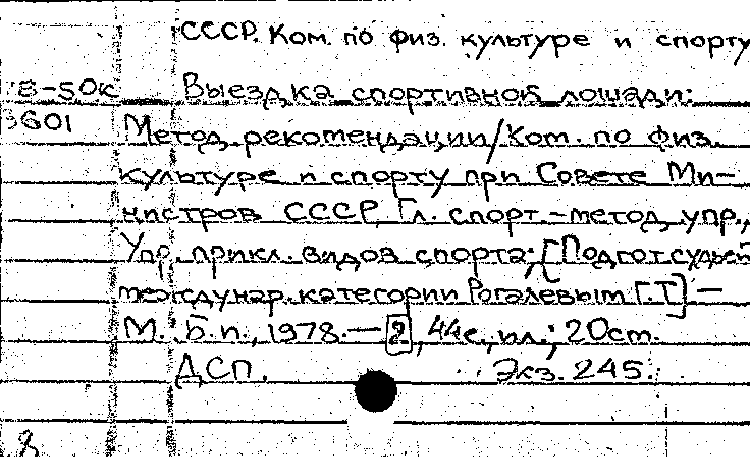 СССР. Ком. по физ. культуре и спорту
78-50к Выездка спортивной лошади:
3601 Метод. рекомендации/Ком. по физ.
культуре и спорту при Совете Ми-
нистров СССР, Гл. спорт.-метод. упр.,
Упр. прикл. видов спорта; [Подгот. судьей
междунар. категории Рогалевым Г.Т.] —
М.: Б. и., 1978. — 2, 44 с., ил.; 20 см.
ДСП. Экз. 245.
8